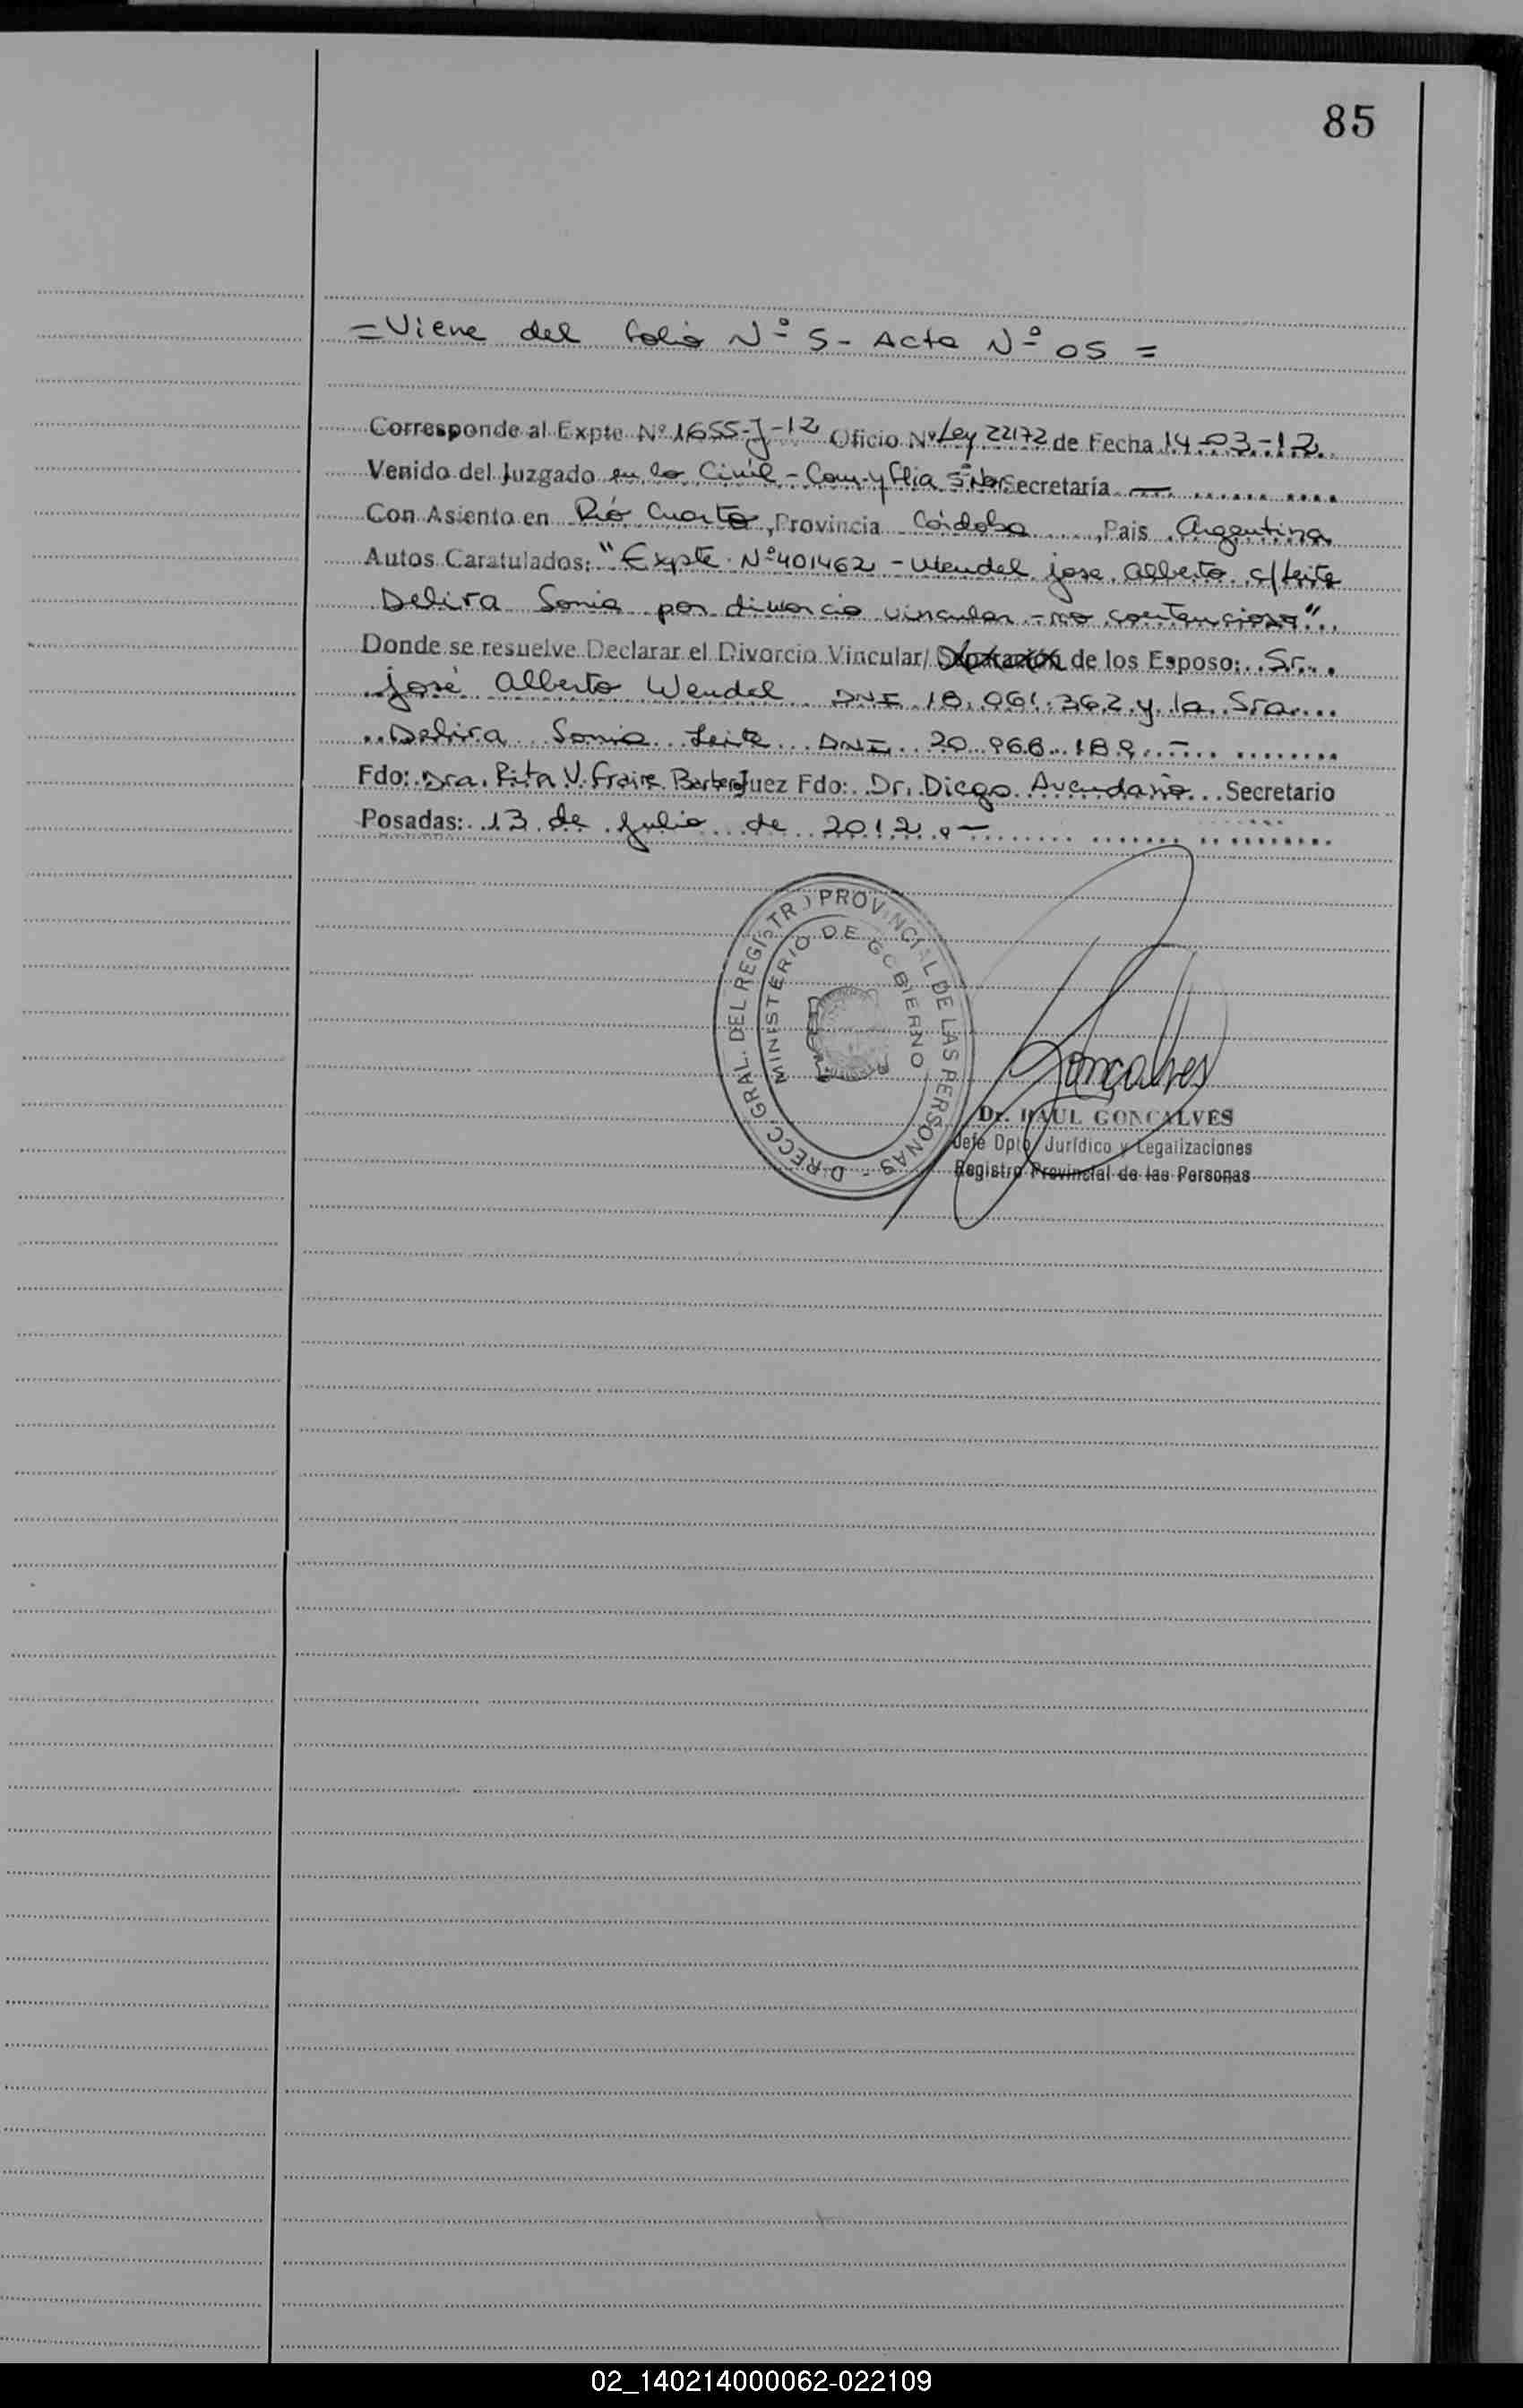 85
=Viene del folio Nº 5- Acta Nº 05 =
Corresponde al Expte Nº 1655-J-12 Oficio Nº Ley 22172 de Fecha 14-03-12
Venido del Juzgado en lo Civil - Com. y flia 5º Nom Secretaría —
Con Asiento en Río Cuarto, Provincia Córdoba, País Argentina
Autos Caratulados: "Expte. Nº 401462 - Wendel jose Alberto c/ Leite
Delira Sonia por divorcio vincular - no contencioso"
Donde se resuelve Declarar el Divorcio Vincular/ Separación de los Esposo: Sr.
josé Alberto Wendel DNI 18.061.362 y la Sra.
Delira Sonia Leite DNI 20.968.189.-
Fdo: Dra. Rita V. Fraire Barbero Juez Fdo: Dr. Diego Avendaño Secretario
Posadas: 13 de Julio de 2012.-
DIRECC. GRAL. DEL REGISTRO PROVINCIAL DE LAS PERSONAS -
MINISTERIO DE GOBIERNO
Gonçalves
Dr. RAUL GONCALVES
Jefe Dpto. Jurídico y Legalizaciones
Registro Provincial de las Personas
02_140214000062-022109